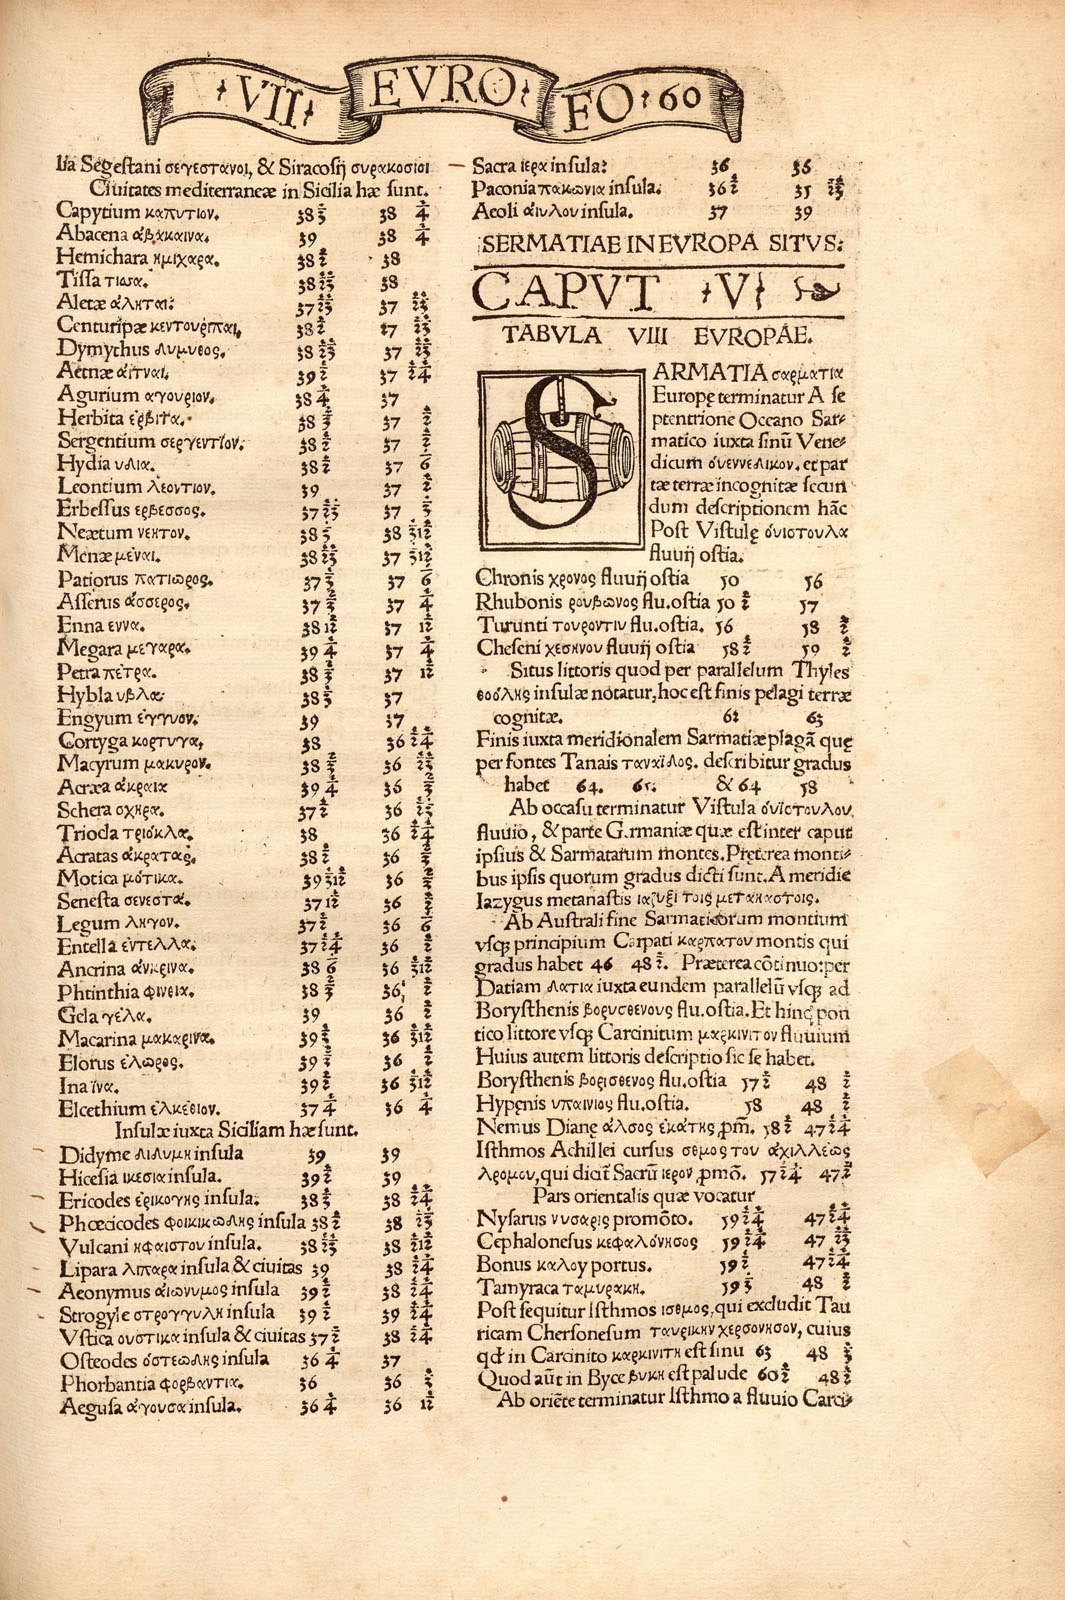 VII EVRO FO 60
lia Segestani σεγεστανοι, & Siracosij συρακοσιοι
Ciuitates mediterraneæ in Sicilia hæ sunt.
Capytium καπυτιον. 38 38
Abacena 39 38
Hemichara ημιχαρα. 38 38
Tissa τισσα. 38 38
Aletæ ἀληται: 37 37
Centuripæ κεντουριπαι, 38
Dymythus 38 37
Aetnæ αἰτναι. 39 37
Agurium αγουριον. 38 37
Herbita ἐρβιτα. 38 37
Sergentium σεργεντίον. 38 37
Hydia υδια. 38 37
Leontium λεοντιον. 39 37
Erbessus ερβεσσος. 37 37
Neætum νεητον. 38 38
Menæ μεναι. 38 37
Patiorus πατιωρος. 37 37
Asserus ἀσσερος. 37 37
Enna εννα. 38 37
Megara μεγαρα. 39 37
Petra πέτρα. 38 37
Hybla υβλα: 38 37
Engyum ἐγγυον. 39 37
Cortyga κορτυγα, 38 36
Macyrum μακυρον. 38 36
Acræa ἀκραια 39 36
Schera σχηρα. 37 36
Trioda τριόκλα. 38 36
Acratas ἀκρατας. 38 36
Motica μότικα. 39 36
Senesta σενεστα. 37 36
Legum ληγον. 37 36
Entella ἐντελλα. 37 36
Ancrina ἀνκρινα. 38 36
Phtinthia 38 36
Gela γέλα. 39 36
Macarina μακαρινα. 39 36
Elorus ἐλωρος. 39 36
Ina ἰνα. 39 36
Elcethium ἐλκεθιον. 37 36
Insulæ iuxta Siciliam hæ sunt.
Didyme διδυμη insula 39 39
Hicesia ικεσια insula. 39 39
Ericodes insula. 38 38
Phœcicodes φοικικωδης insula 38 38
Vulcani ηφαιστου insula. 38 38
Lipara λιπαρα insula & ciuitas 39 38
Aeonymus insula 39 38
Strogyle στρογγυλη insula 39 39
Vstica ουστικα insula & ciuitas 37 38
Osteodes ὀστεωδης insula 36 37
Phorbantia φορβαντια. 36 36
Aegusa αἰγουσα insula. 36 36
Sacra ιερα insula: 36 36
Paconia πακωνια insula. 36 35
Aeoli insula. 37 39
SERMATIAE IN EVROPA SITVS:
CAPVT V
TABVLA VIII EVROPAE.
SARMATIA σαρματια
Europę terminatur A se
ptentrione Oceano Sar-
matico iuxta sinũ Vene-
dicum ὀυεννεδικον. et par
tæ terræ incognitæ secun
dum descriptionem hãc
Post Vistulę ὀυιστουλα
fluuij ostia.
Chronis χρονος fluuij ostia 50 56
Rhubonis ρουβωνος flu.ostia 50 57
Turunti τουροντιυ flu.ostia. 56 58
Cheseni χεσηνου fluuij ostia 58 59
Situs littoris quod per parallelum Thyles
insulæ notatur, hoc est finis pelagi terræ
cognitæ. 62 63
Finis iuxta meridionalem Sarmatiæ plagã quę
per fontes Tanais ταναϊδος. describitur gradus
habet 64. 65. & 64 58
Ab occasu terminatur Vistula
fluuio, & parte G.rmaniæ quæ est inter caput
ipsius & Sarmatarum montes. Pręterea monti-
bus ipsis quorum gradus dicti sunt. A meridie
Iazygus metanastis
Ab Australi fine Sarmaticorum montium
vsq̃ principium Carpati καρπατου montis qui
gradus habet 46 48. Præterea cõtinuo: per
Datiam δατια iuxta eundem parallelũ vsq̃ ad
Borysthenis βορυσθενους flu.ostia. Et hinc pon
tico littore vsq̃ Carcinitum fluuium
Huius autem littoris descriptio sic se habet.
Borysthenis βορισθενος flu.ostia 57 48
Hypenis υπαινιος flu.ostia. 58 48
Nemus Dianę ἀλσος ἑκατης ,pm̃. 58 47
Isthmos Achillei cursus
δρομου, qui dicit̃ Sacrũ ιερον ,pmõ. 57 47
Pars orientalis quæ vocatur
Nysarus νυσαρις promõto. 59 47
Cephalonesus κεφαλόνησος 59 47
Bonus καλου portus. 59 47
Tamyraca ταμυρακη. 59 48
Post sequitur Isthmos ισθμος, qui excludit Tau
ricam Chersonesum ταυρικην χερσονησον, cuius
qd̃ in Carcinito καρκινιτη est sinu 63 48
Quod aũt in Byce βυκη est palude 60 48
Ab oriẽte terminatur Isthmo a fluuio Carci-